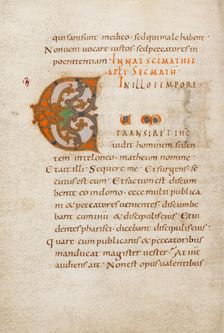 qui sani sunt medico . sed qui male habent
Non veni vocare iustos sed peccatores in
poenitentiam .
IN NAT SCI MATHEI
APLI SEC MATH
IN ILLO TEMPORE
CUM
TRANSIRET IHC
vidit hominem seden
tem in teloneo . matheum nomine
Et ait illi . Sequere me . Et surgens se
cutus est eum . Et factum est discum
bente eo in domo . ecce multi publica
ni & peccatores venientes discumbe
bant cum ihu & discipulis eius . Et vi
dentes pharisei dicebant discipulis eius .
Quare cum publicanis & peccatoribus
manducat magister vester . At ihc
audiens ait . Non est opus valentibus